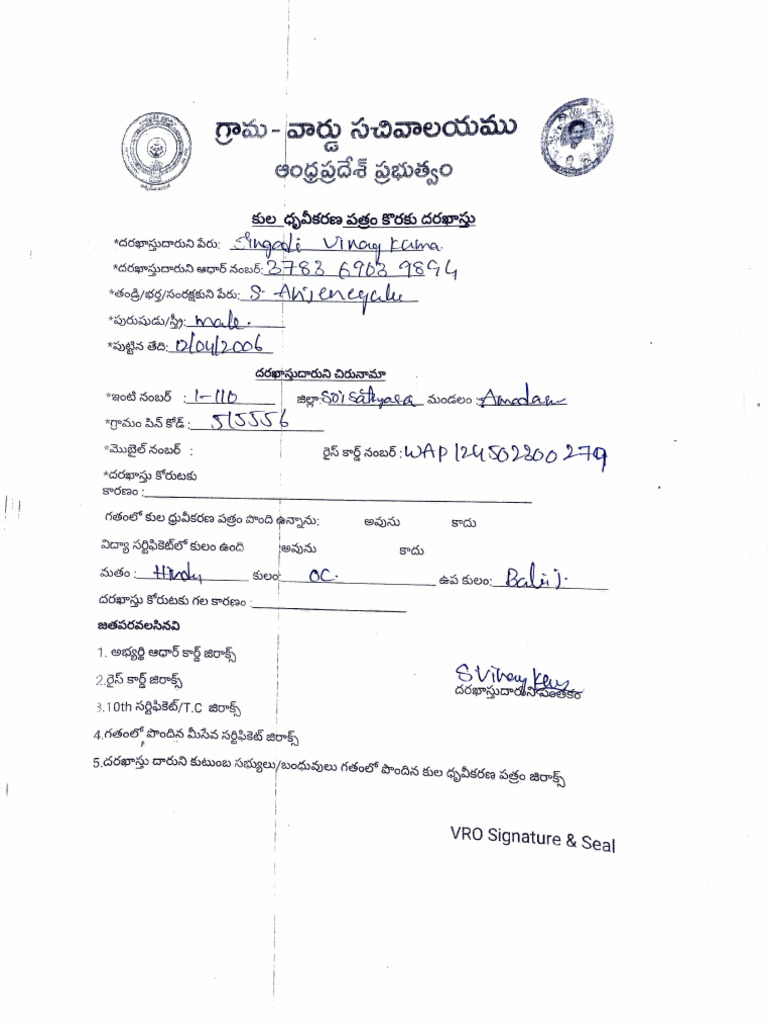 గ్రామ - వార్డు సచివాలయము
ఆంధ్రప్రదేశ్ ప్రభుత్వం
కుల ధృవీకరణ పత్రం కొరకు దరఖాస్తు
*దరఖాస్తుదారుని పేరు: Singadi Vinay Kuma
*దరఖాస్తుదారుని ఆధార్ నంబర్: 3783 6903 9894
*తండ్రి/భర్త/సంరక్షకుని పేరు: S.
*పురుషుడు/స్త్రీ: male.
*పుట్టిన తేది: 12/04/2006
దరఖాస్తుదారుని చిరునామా
*ఇంటి నంబర్ : 1-110 జిల్లా: Sri Sathyasa మండలం:
*గ్రామం పిన్ కోడ్ : 515556
*మొబైల్ నంబర్ : రైస్ కార్డ్ నంబర్ : WAP124502200279
*దరఖాస్తు కోరుటకు
కారణం :
గతంలో కుల ధ్రువీకరణ పత్రం పొంది ఉన్నాను: అవును కాదు
విద్యా సర్టిఫికెట్‌లో కులం ఉంది అవును కాదు
మతం : Hindu కులం: OC. ఉప కులం: Balij.
దరఖాస్తు కోరుటకు గల కారణం :
జతపరవలసినవి
1. అభ్యర్థి ఆధార్ కార్డ్ జిరాక్స్
2.రైస్ కార్డ్ జిరాక్స్
3.10th సర్టిఫికెట్/T.C జిరాక్స్
S Vinay Kum
దరఖాస్తుదారుని సంతకం
4.గతంలో పొందిన మీసేవ సర్టిఫికెట్ జిరాక్స్
5.దరఖాస్తు దారుని కుటుంబ సభ్యులు/బంధువులు గతంలో పొందిన కుల ధృవీకరణ పత్రం జిరాక్స్
VRO Signature & Seal